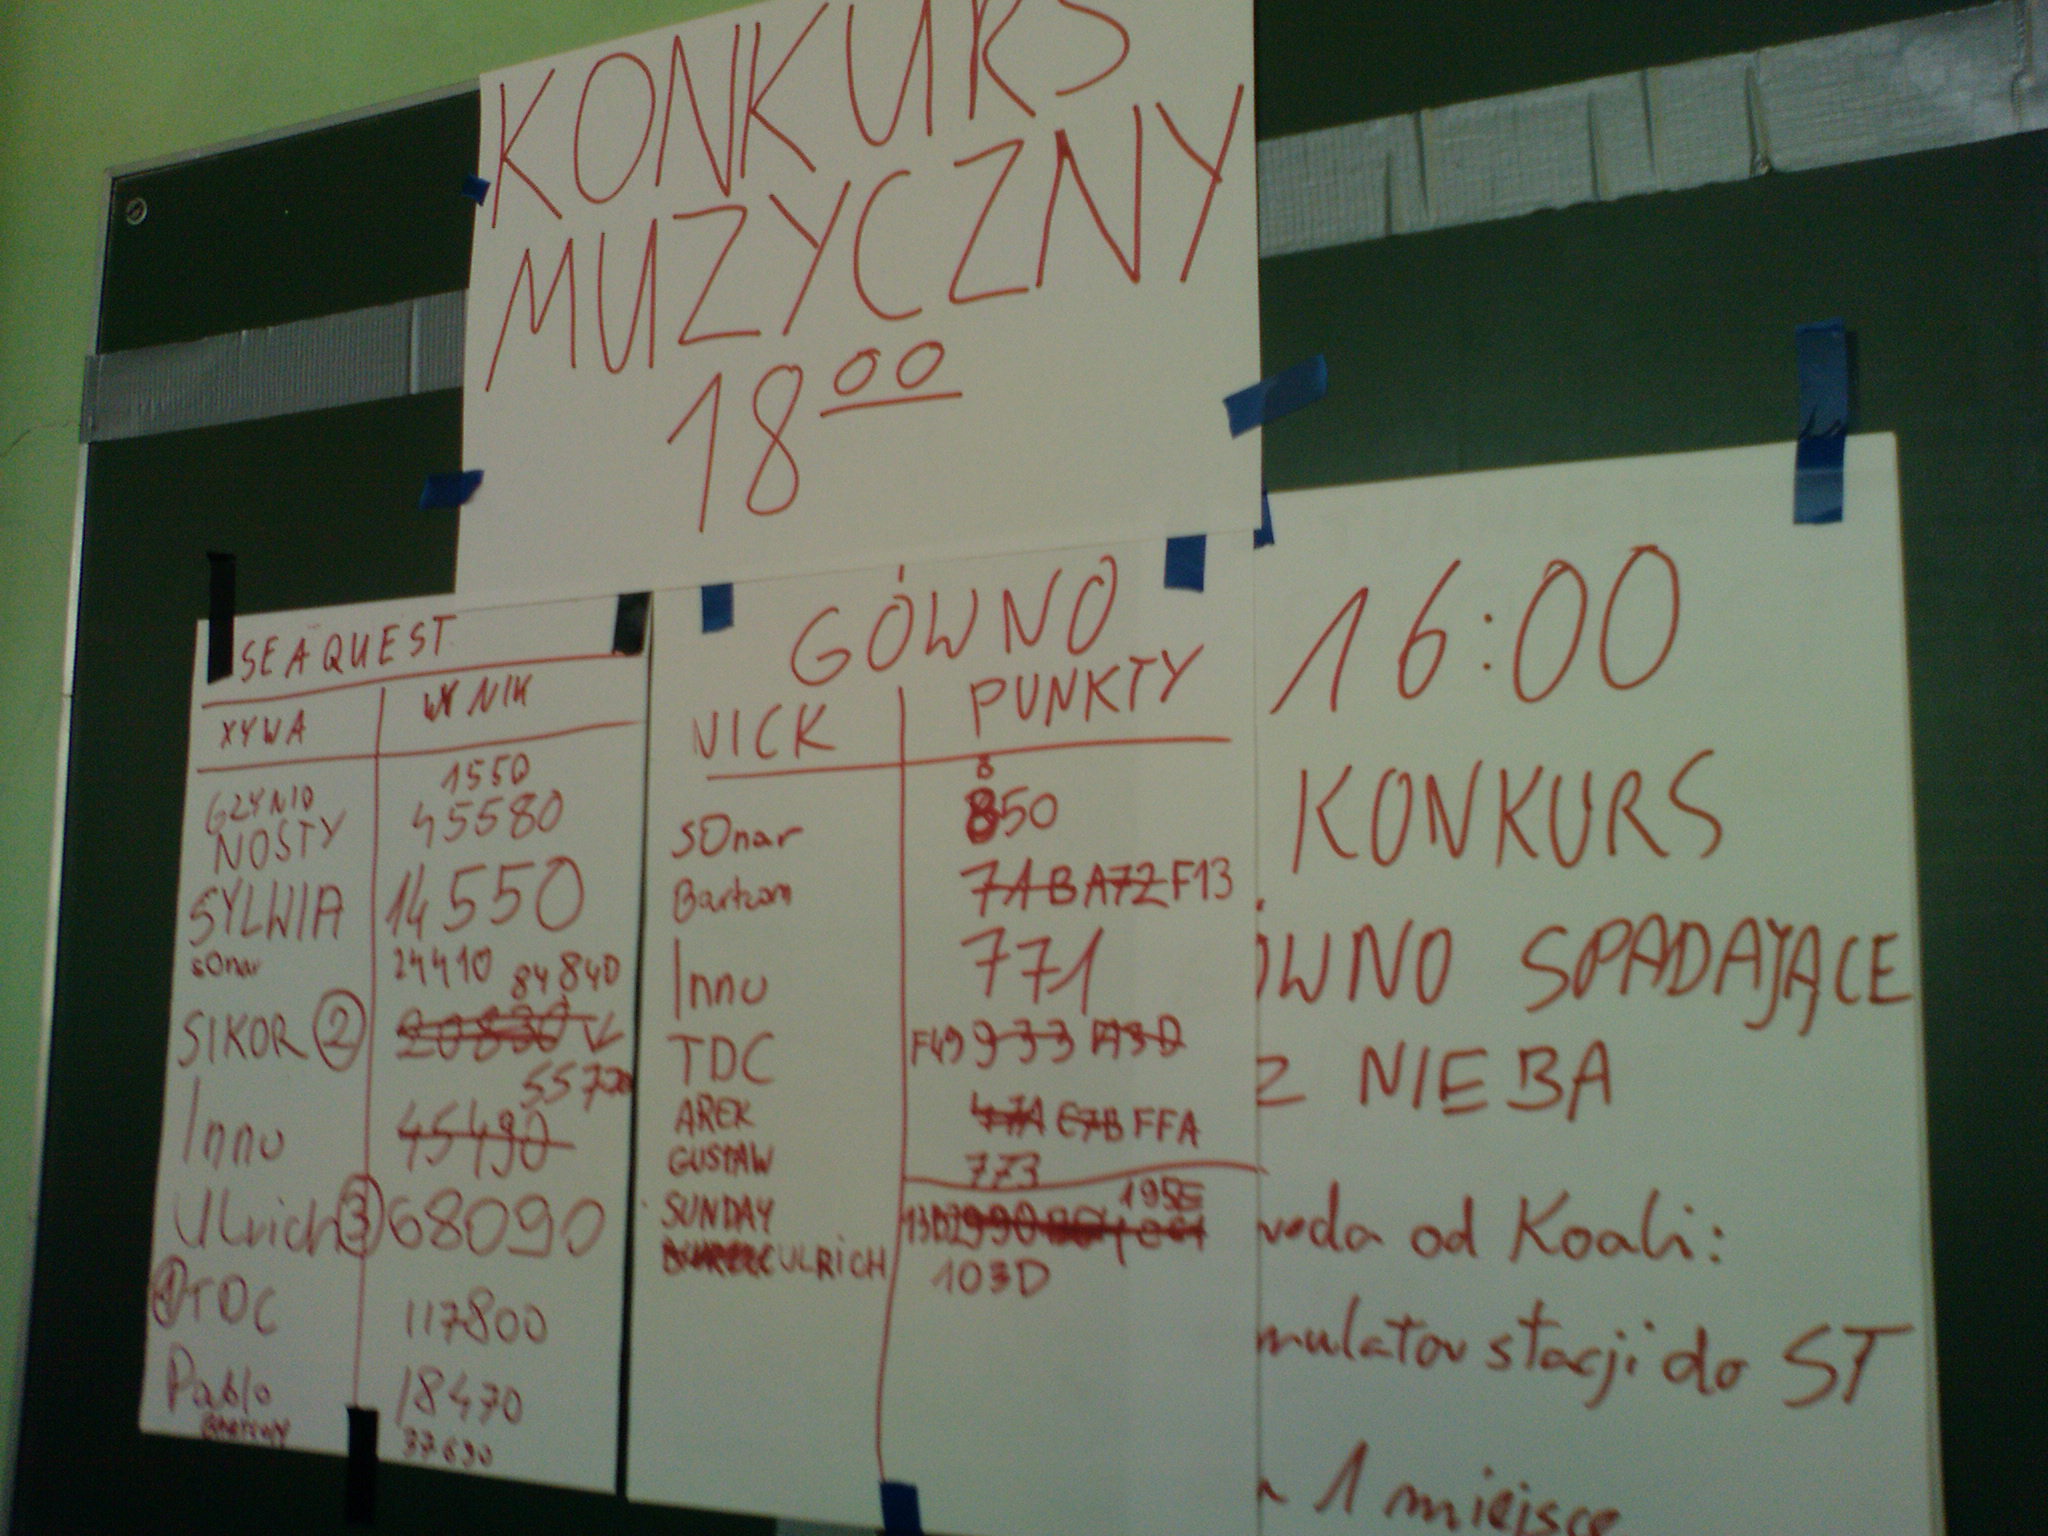 KONKURS
MUZYCZNY
18 00
SEAQUEST
XYWA WYNIK
GZYNIO 1550
NOSTY 45580
SYLWIA 14550
sOnar 24410
84840
SIKOR 2 20830
55720
Innu 45490
ULrich 3 68090
1 TDC 117800
Pablo 18470
37690
GÓWNO
NICK PUNKTY
8
sOnar 850
Bartcom 71B A72 F13
Innu 771
TDC F49 933 A3D
AREK 47A E7B FFA
GUSTAW 773
SUNDAY 195E
13D2990
ULRICH 103D
16:00
KONKURS
ÓWNO SPADAJĄCE
Z NIEBA
od Koali:
mulator stacji do ST
1 miejsce